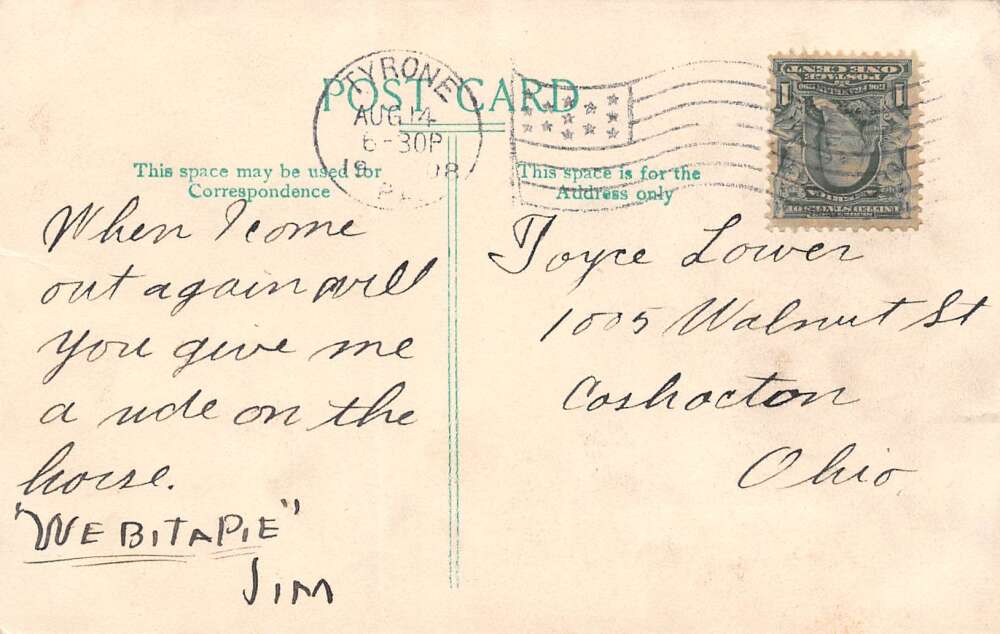 POST CARD
TYRONE
AUG 14
6-30P
19 08
PA.
This space may be used for
Correspondence
This space is for the
Address only
ONE CENT
POSTAGE
1 1
When I come
out again will
you give me
a ride on the
horse.
"WE BIT A PIE"
JIM
Joyce Lower
1005 Walnut St
Coshocton
Ohio